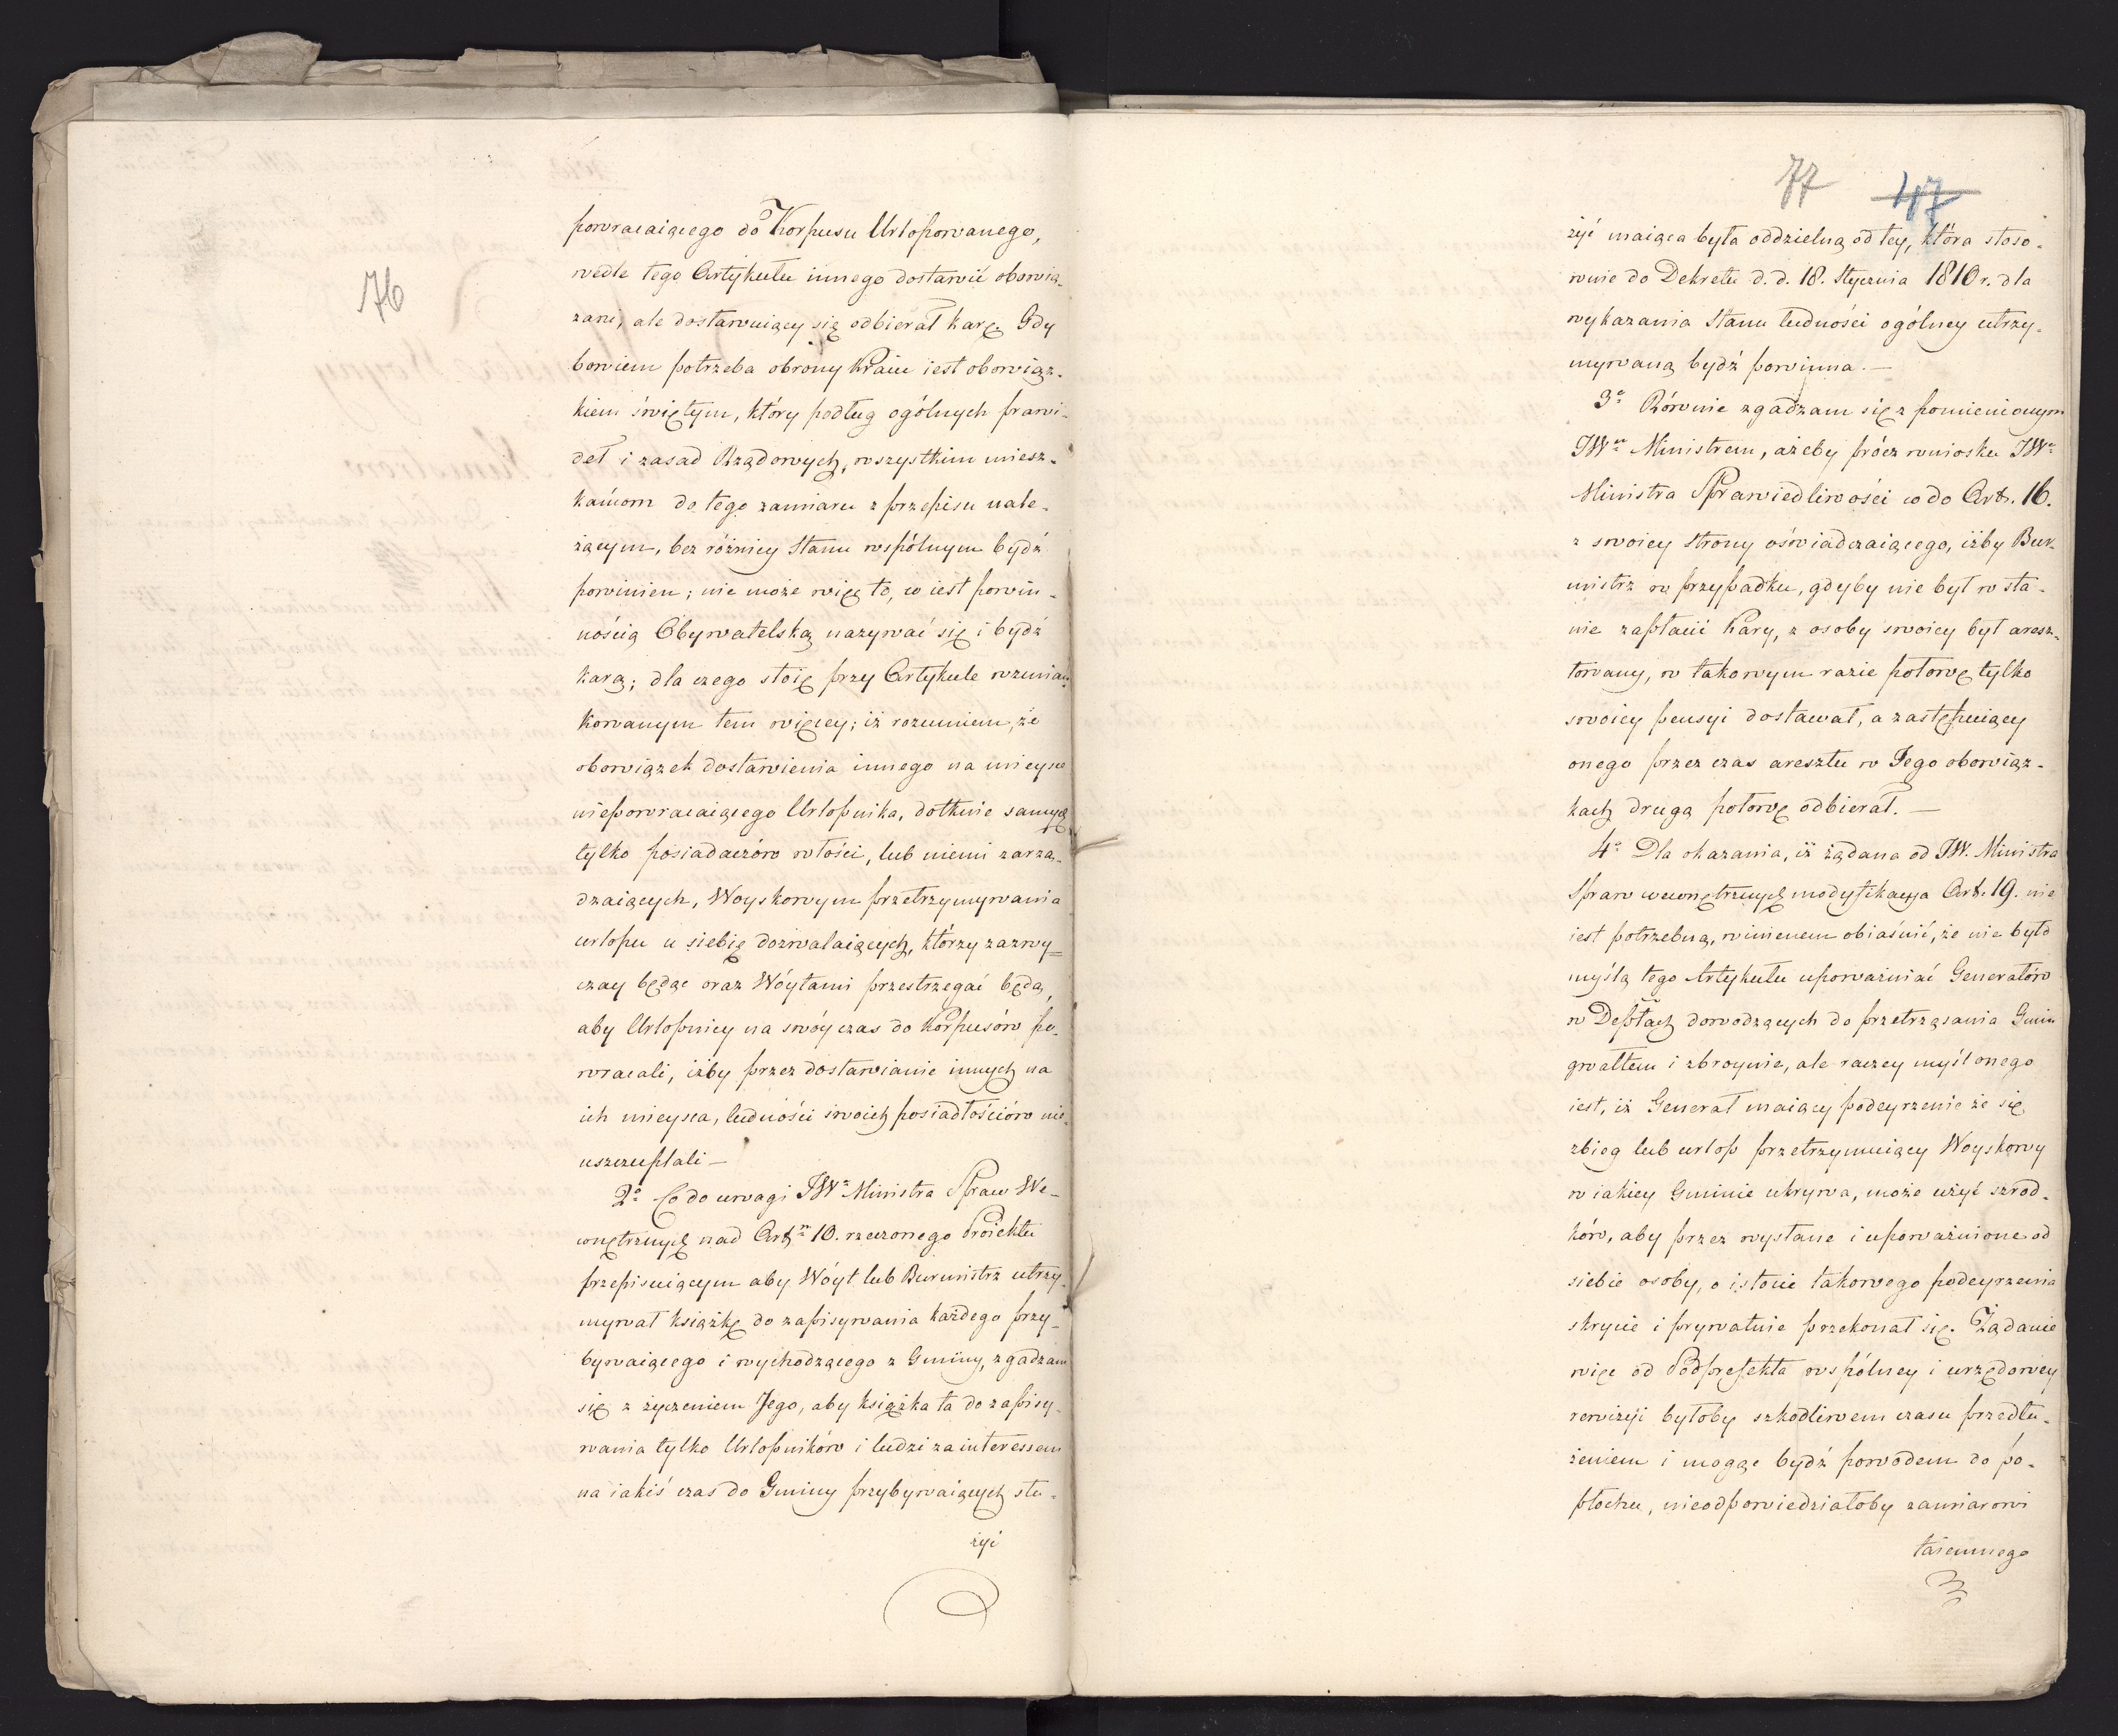 76
powracaiącego do Korpusu Urlopowanego,
wedle tego Artykułu innego dostawić obowią-
zani, ale dostawuiący się odbierał karę. Gdy
bowiem potrzeba obrony Kraiu iest obowiąz-
kiem świętym, który podług ogólnych prawi-
deł i zasad Rządowych, wszystkim miesz-
kańcom do tego zamiaru z przepisu nale-
żącym, bez różnicy Stanu wspólnym bydź
powinien; nie może więc to, co iest powin-
nością Obywatelską nazywać się i bydź
karą; dla czego stoię przy Artykule wzmian-
kowanym tem więcey; iż rozumiem, że
obowiązek dostawienia innego na mieysce
niepowracaiącego Urlopnika, dotknie samych
tylko posiadaczów włości, lub niemi zarzą-
dzaiących, Woyskowym przetrzymywania
urlopu u siebie dozwalaiących, którzy zazwy-
czay będąc oraz Wóytami przestrzegać będą,
aby Urlopnicy na swóy czas do Korpusów po-
wracali, iżby przez dostawianie innych na
ich mieysca, ludności swoich posiadłościów nie
uszczuplali —
2o Co do uwagi JWo Ministra Spraw We-
wnętrznych nad Artm 10. rzeczonego Proiektu
przepisuiącym aby Wóyt lub Burmistrz utrzy-
mywał książkę do zapisywania każdego przy-
bywaiącego i wychodzącego z Gminy, zgadzam
się z życzeniem Jego, aby książka ta do zapisy-
wania tylko Urlopników i ludzi za interessem
na iakiś czas do Gminy przybywaiących słu-
żyć
77 47
żyć maiąca była oddzielną od tey, która stoso-
wnie do Dekretu d. d. 18. Stycznia 1810 r. dla
wykazania Stanu ludności ogólney utrzy-
mywaną bydź powinna. —
3o Równie zgadzam się z pomienionym
JWm Ministrem, ażeby prócz wniosku JWo
Ministra Sprawiedliwości co do Art. 16.
z swoiey strony oświadczaiącego, iżby Bur-
mistrz w przypadku, gdyby nie był w sta-
nie zapłacić kary, z osoby swoiey był aresz-
towany, w takowym razie połowę tylko
swoiey pensyi dostawał, a zastępuiący
onego przez czas aresztu w Jego obowiąz-
kach drugą połowę odbierał. —
4o Dla okazania, iż żądana od JW. Ministra
Spraw wewnętrznych modyfikacya Art. 19. nie
iest potrzebną, winienem obiaśnić, że nie było
myślą tego Artykułu upoważniać Generałów
w Depttach dowodzących do przetrząsania Gmin
gwałtem i zbroynie, ale raczey myśl onego
iest, iż Generał maiący podeyrzenie że się
zbieg lub urlop przetrzymuiący Woyskowy
w iakiey Gminie ukrywa, może użyć szrod-
ków, aby przez wysłane i upoważnione od
siebie osoby, o istocie takowego podeyrzenia
skrycie i prywatnie przekonał się. Żądanie
więc od Podprefekta wspólney i urzędowey
rewizyi byłoby szkodliwem czasu przedłu-
żeniem i mogąc bydź powodem do po-
płochu, nieodpowiedziałoby zamiarowi
taiemnego